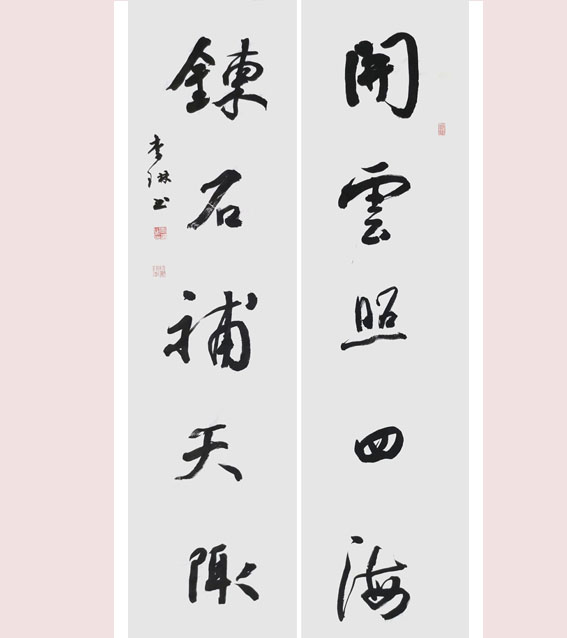 開雲照四海
鍊石補天陬
李琳书